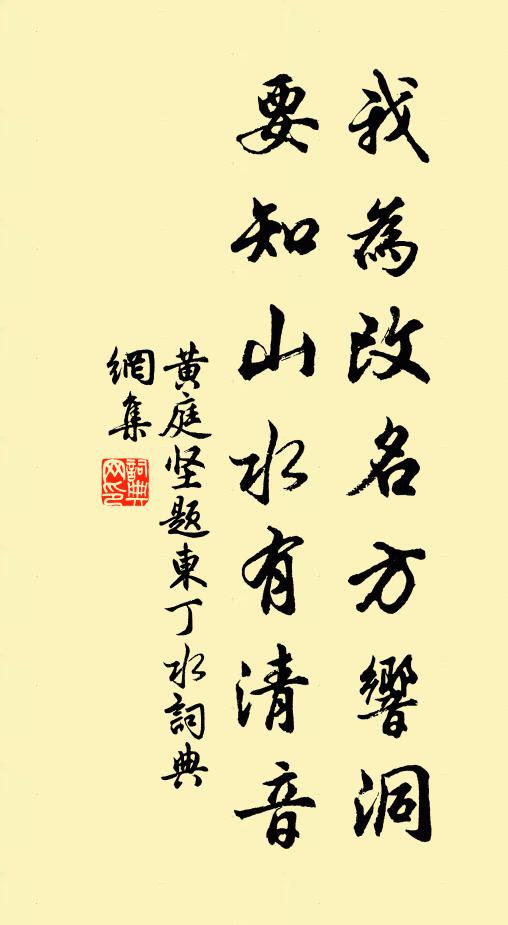 我為改名方響洞
要知山水有清音
黄庭坚題東丁水詞典
網集
詞典網印